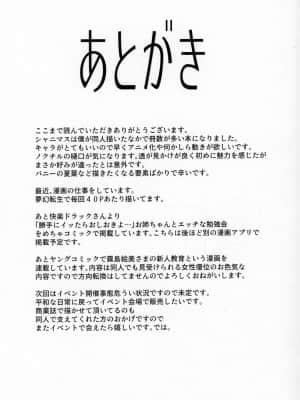 あとがき
ここまで読んでいただきありがとうございます。
シャニマスは僕が同人描いたなかで冊数が多い本になりました。
キャラがとてもいいので早くアニメ化や何かしら動きが欲しいです。
ノクチルの樋口が気になります。透が見た目が良く初めに魅力を感じたが
まさか好みが違ったとは意外です。
バニーの夏葉など描きたくなる要素ばかりで辛いです。
最近、漫画の仕事をしています。
夢幻転生で毎回40Pあたり描いてます。
あと快楽ドラックさんより
「勝手にイッたらおしおきよ…」お姉ちゃんとエッチな勉強会
をめちゃコミックで掲載しています。こちらは後ほど別の漫画アプリで
掲載予定です。
あとヤングコミックで霧島絵美さまの新人教育という漫画を
連載しています。内容は同人でも見受けられる女性優位のお色気な
内容ですので方向転換はしてませんのでよろしくおねがいします。
次回はイベント開催事態危うい状況ですので未定です。
平和な日常に戻ってイベント会場で販売したいです。
商業誌で描かせて頂いてるのも
同人で支えてくれた方のおかげですので
またイベントで会えたら嬉しいです。では、